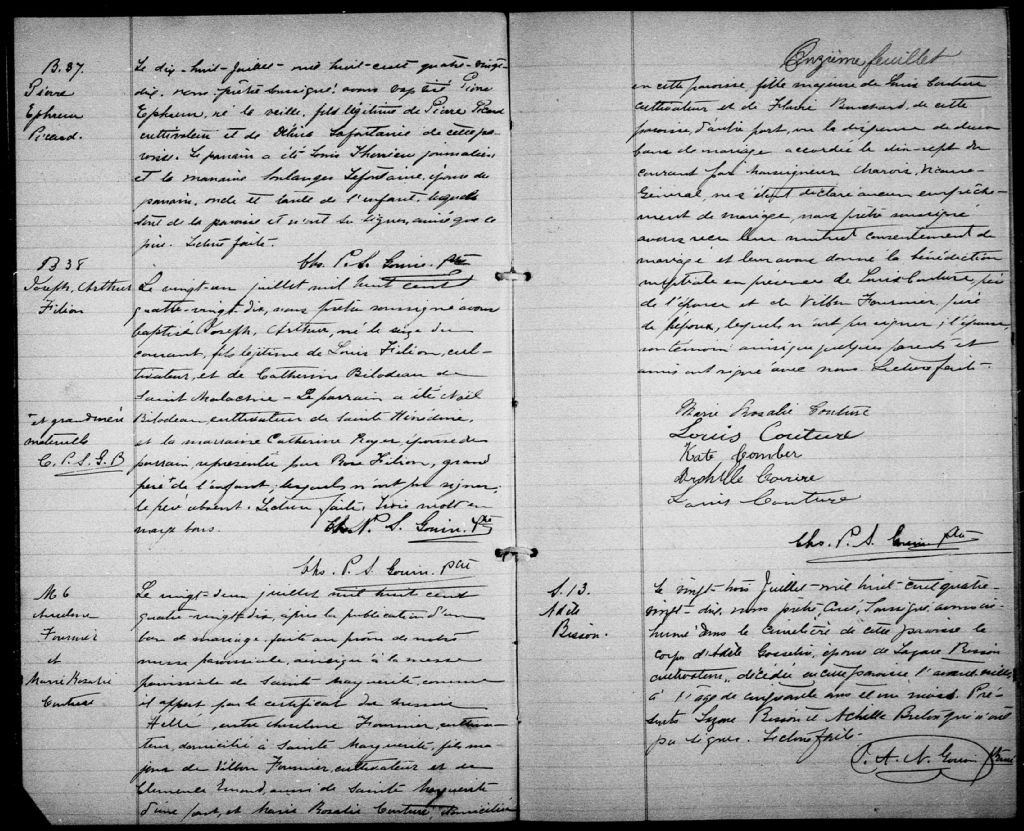 B.37.
Pierre
Ephrem
Picard.
Le dix-huit Juillet mil huit-cent quatre-vingt-
dix, nous prêtre soussigné, avons baptisé Pierre
Ephrem, né la veille, fils légitime de Pierre Picard
cultivateur et de Délia Lafontaine de cette pa-
roisse. Le parrain a été Louis Therrien journalier
et la marraine Soulanges Lafontaine, épouse du
parrain, oncle et tante de l'enfant, lesquels
sont de la paroisse et n'ont su signer, ainsi que le
père. Lecture faite.
Chs. P. S. Gouin. Ptre
B 38
Joseph, Arthur
Filion
Le vingt un juillet mil huit cent
quatre-vingt-dix, nous prêtre soussigné avons
baptisé Joseph, Arthur, né le seize du
courant, fils légitime de Louis Filion, cul-
tivateur, et de Catherine Bilodeau de
Saint Malachie - Le parrain a été Noël
Bilodeau, cultivateur de Sainte Hénédine,
et la marraine Catherine Royer, épouse du
parrain, représentée par Filion, grand
père + de l'enfant; lesquels n'ont pu signer;
le père absent. Lecture faite, Trois mots en
marge bons.
Chs. P. S. Gouin. Ptre
+ et grand'mère
maternelle
C. P. S. G. P
Chs. P. S. Gouin. Ptre
M 6
Fournier
et
Marie Rosalie
Couture
Le vingt-deux juillet mil huit cent
quatre-vingt-dix, après la publication d'un
ban de mariage, faite au prône de notre
messe paroissiale, ainsi qu'à la messe
paroissiale de Sainte Marguerite, comme
il appert par le certificat du messire
Hallé, entre Fournier, cultiva-
teur, domicilié à Sainte Marguerite, fils ma-
jeur de Vilbon Fournier, cultivateur et de
Clémence aussi de Sainte Marguerite
d'une part, et Marie Rosalie Couture, domiciliée
Onzième feuillet
en cette paroisse, fille majeure de Louis Couture
cultivateur et de Flavie Bouchard, de cette
paroisse d'autre part, vu la dispense de deux
bans de mariage accordée le dix-sept du
courant par Monseigneur Marois, Vicaire-
Général, ne s'étant déclaré aucun empêche-
ment de mariage, nous prêtre soussigné
avons reçu leur mutuel consentement de
mariage et leur avons donné la bénédiction
nuptiale en présence de Louis Couture, père
de l'épouse et de Vilbon Fournier, père
de l'époux, lesquels n'ont pu signer; l'épouse,
son témoin ainsi que quelques parents et
amis ont signé avec nous. Lecture faite.
Marie Rosalie Couture
Louis Couture
Kate Comber
Louis Couture
Chs. P. S. Gouin Ptre
S. 13.
Adèle
Bisson.
Le vingt-trois Juillet mil huit-cent quatre-
vingt-dix, nous prêtre Curé, Soussigné, avons in-
humé dans le Cimetière de cette paroisse le
corps d'Adèle Gosselin, épouse de Lazare Bisson
cultivateur, décédée en cette paroisse l'avant-veille
à l'âge de cinquante ans et un mois. Pré-
sents Lazare Bisson et Achille Breton qui n'ont
pu signer. Lecture faite.
J. A. N. Gouin Ptre